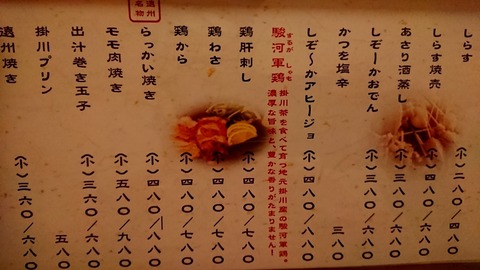 しらす 〈小〉二八〇/四八〇
しらす焼売 〈小〉四八〇/八八〇
あさり酒蒸し 〈小〉四八〇/八八〇
しぞーかおでん 〈小〉三八〇/六八〇
かつを塩辛 三八〇
しぞ〜かアヒージョ 〈小〉四八〇/八八〇
駿河軍鶏
するが しゃも
掛川茶を食べて育つ地元掛川産の駿河軍鶏。
濃厚な旨味と、豊かな香りがたまりません!
鶏肝刺し 〈小〉四八〇/七八〇
鶏わさ 〈小〉四八〇/七八〇
鶏から 〈小〉四八〇/七八〇
遠州名物
らっかい焼き 〈小〉四八〇/八八〇
モモ肉焼き 〈小〉五八〇/九八〇
出汁巻き玉子 〈小〉三六〇/六八〇
掛川プリン 五八〇
遠州焼き 〈小〉三六〇/六八〇